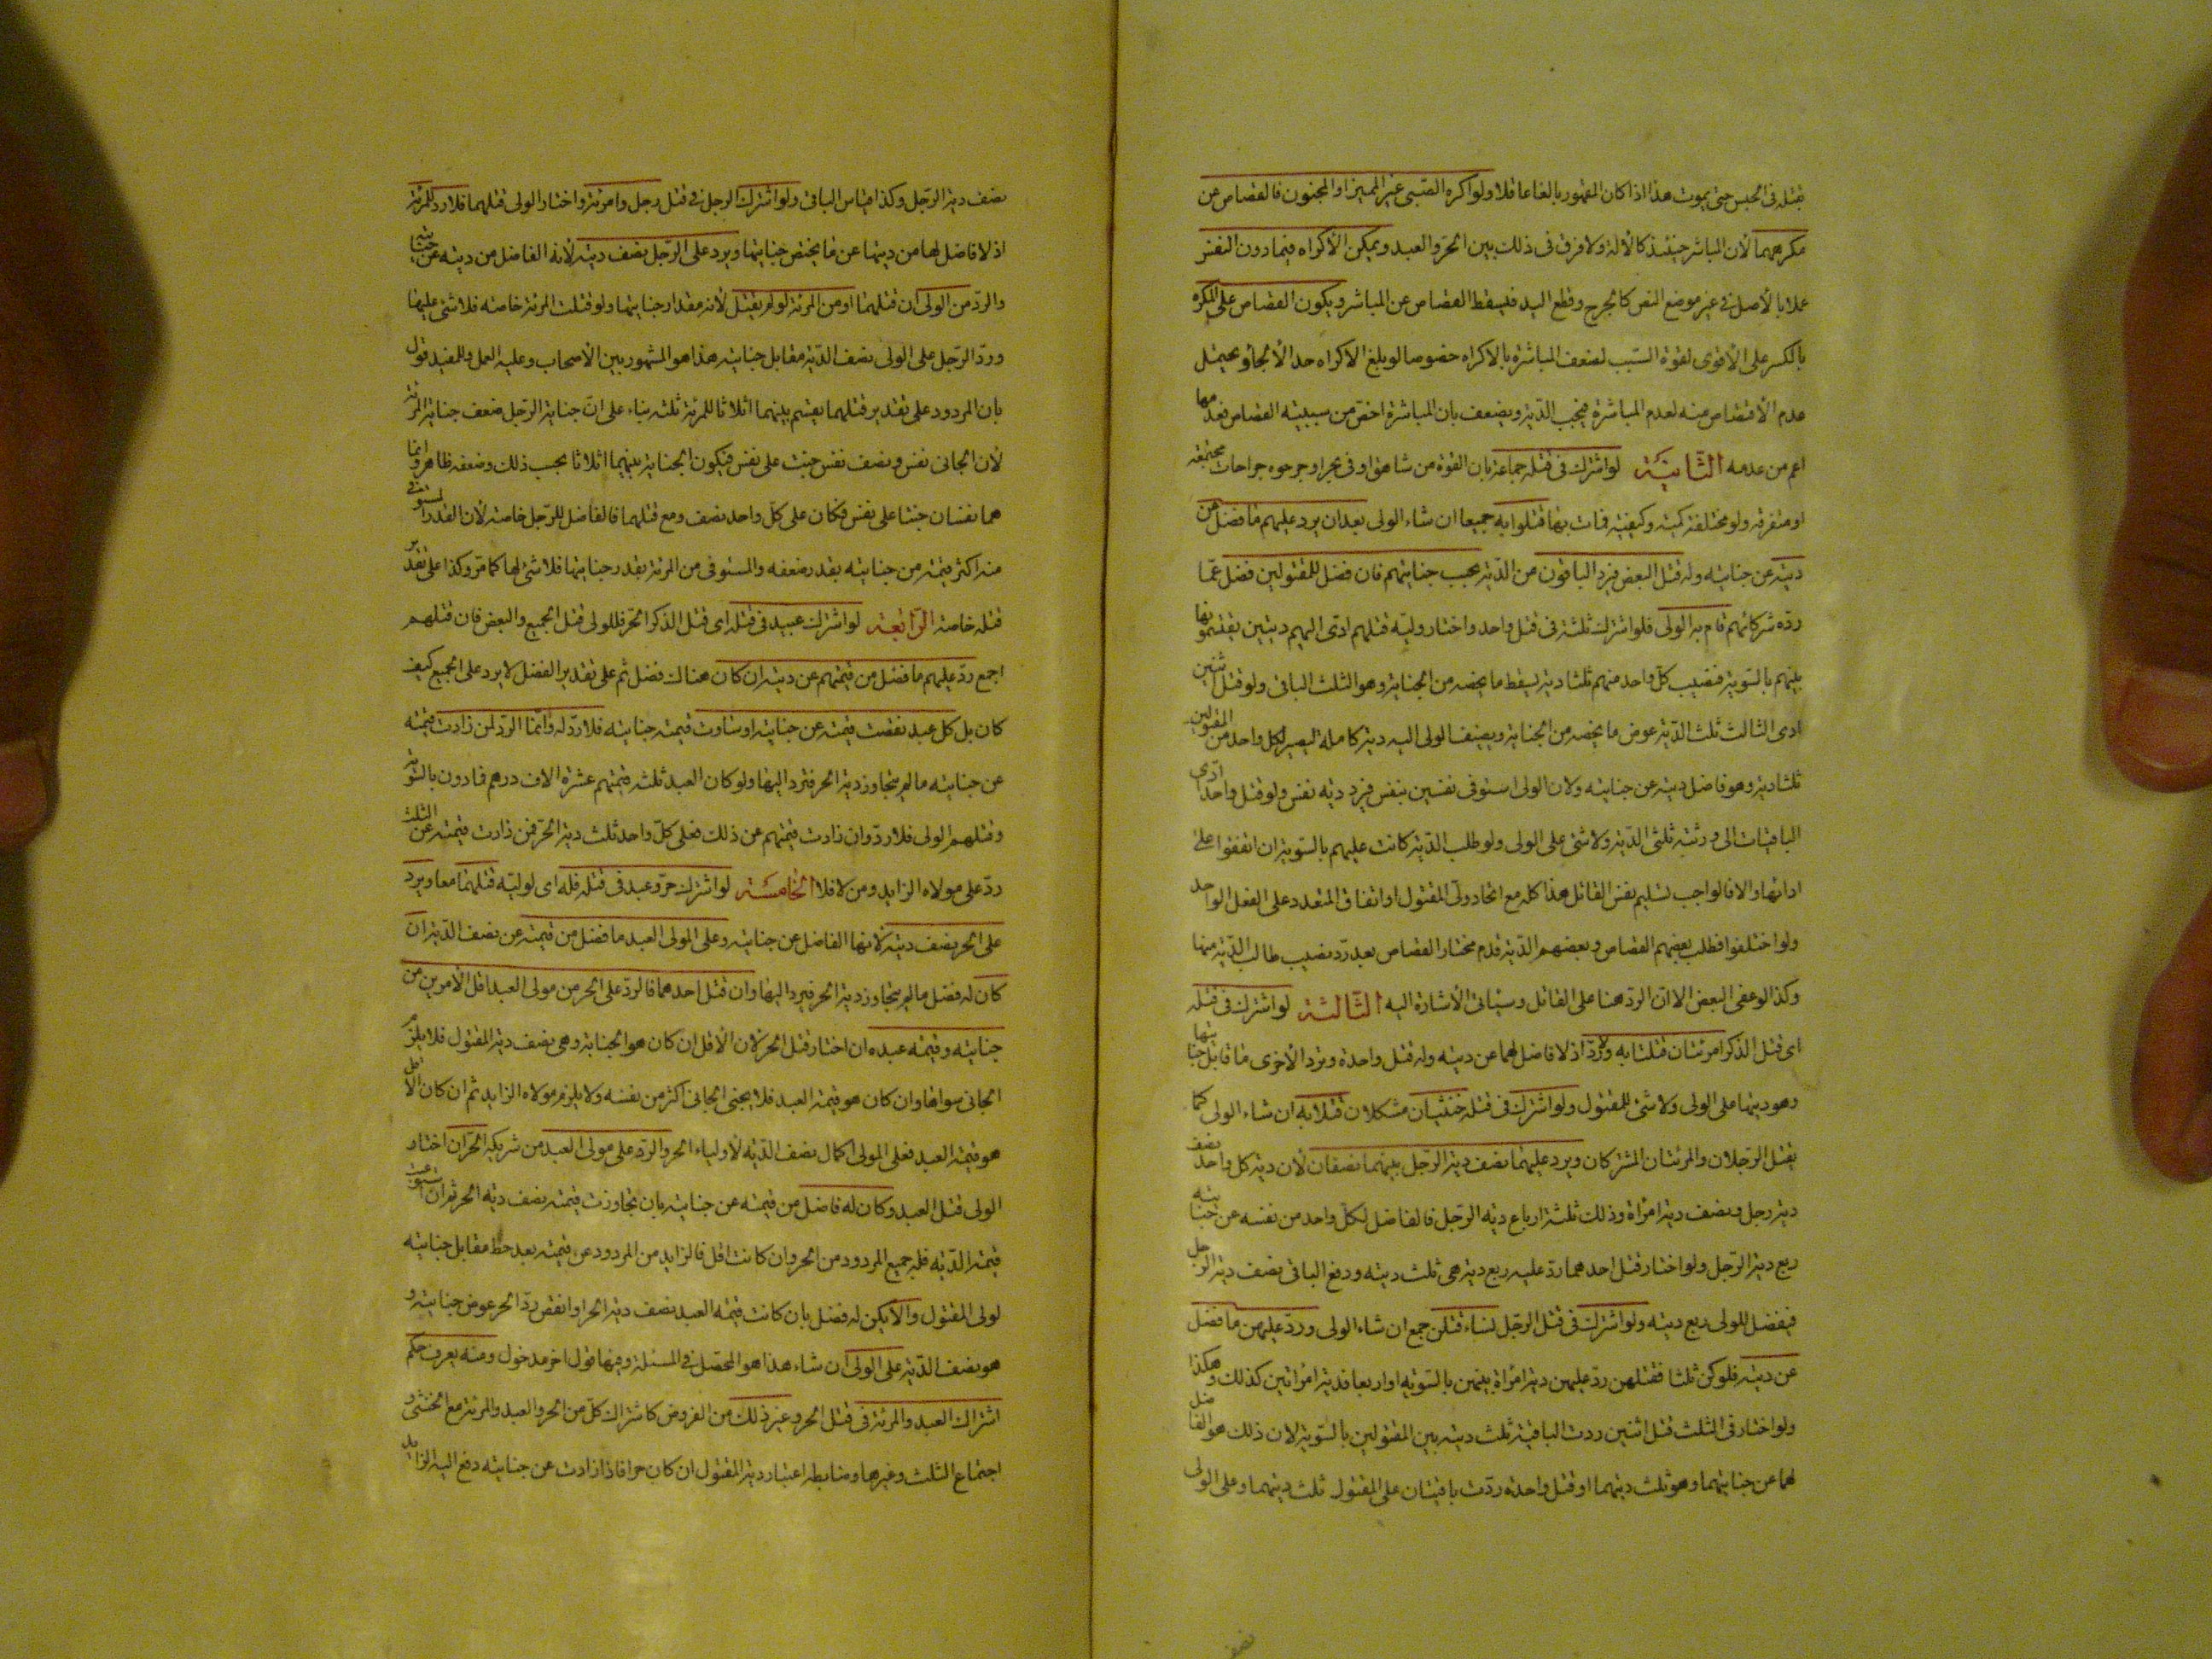 يقتله في الحبس حتى يموت هذا اذا كان المقهور بالغا عاقلا ولو اكره الصبي غير المميز او المجنون فالقصاص عن
مكرههما لأن المباشر حينئذ كالآلة ولا فرق في ذلك بين الحرّ والعبد ويمكن الاكراه فيما دون النفس
عملا بالأصل في غير موضع النص كالجرح وقطع اليد فيسقط القصاص عن المباشر ويكون القصاص على المكره
بالكسر على الأقوى لقوة السبب لضعف المباشرة بالاكراه خصوصا لو بلغ الاكراه حد الألجاء ويحتمل
عدم الأقتصاص منه لعدم المباشرة فيجب الدّية ويضعف بان المباشرة اخصّ من سببيته القصاص فعدمها
اعم من عدمه الثّانية لو اشترك في قتله جماعة بان القوه من شاهق او في بحر او جرحوه جراحات مجتمعة
او متفرقة ولو مختلفة كمية وكيفية فمات بها قتلوا به جميعا ان شاء الولي بعد ان يرد عليهم ما فضل من
ديته عن جنايته وله قتل البعض فيرد الباقون من الدّية بحسب جنايتهم فان فضل للمقتولين فضل عمّا
ردّه شركائهم قام به الولى فلو اشترك ثلثة في قتل واحد واختار وليّه قتلهم ادّى اليهم ديتين يقتسمونها
بينهم بالسّوية فنصيب كلّ واحد منهم ثلثا دية ليسقط ما يخصه من الجناية وهو الثلث الباقي ولو قتل اثنين
ادى الثالث ثلث الدّية عوض ما يخصه من الجناية ويضيف الولى اليه دية كاملة ليصير لكل واحد من المقتولين
ثلثا دية وهو فاضل ديته عن جنايته ولان الولى استوفى نفسين بنفس فيرد دية نفس ولو قتل واحدا ادّى
الباقيات الى ورثته ثلثى الدّية ولا شئ على الولى ولو طلب الدّية كانت عليهم بالسّوية ان اتفقوا على
ادائها والا فالواجب تسليم نفس القاتل هذا كله مع اتحاد ولى المقتول او اتفاق المتعدد على الفعل الواحد
ولو اختلفوا فطلب بعضهم القصاص وبعضهم الدّية قدم مختار القصاص بعد ردّ نصيب طالب الدّية منها
وكذا لو عفى البعض الا انّ الردّ هنا على القاتل وسياتي الأشارة اليه الثّالثة لو اشترك في قتله
اى قتل الذكر امرئتان قتلتا به ولا ردّ اذ لا فاضل لهما عن ديته وله قتل واحدة وترد الأخرى ما قابل جنايتها
وهو ديتها على الولى ولا شئ للمقتول ولو اشترك في قتله خنثيان مشكلان قتلا به ان شاء الولى كما
يقتل الرّجلان والمرئتان المشتركان ويرد عليهما نصف دية الرّجل بينهما نصفان لأن دية كل واحد نصف
دية رجل ونصف دية امراة وذلك ثلثة ارباع دية الرّجل فالفاضل لكلّ واحد من نفسه عن جنايته
ربع دية الرّجل ولو اختار قتل احدهما ردّ عليه ربع دية هى ثلث ديته ودفع الباقي نصف دية الرّجل
فيفضل للولى ربع ديته ولو اشترك في قتل الرّجل نساء قتلن جمع ان شاء الولى وردّ عليهن ما فضل
عن ديته فلو كن ثلثا فقتلهن ردّ عليهن دية امراة بينهن بالسّوية او اربعا فدية امراتين كذلك وهكذا
ولو اختار في الثلث قتل اثنين ردت الباقية ثلث ديته بين المقتولين بالسّوية لان ذلك هو الفاضل
لهما عن جنايتهما وهو ثلث ديتهما او قتل واحدة ردّت باقيتان على المقتول ثلث ديتهما وعلى الولى
نصف
نصف دية الرّجل وكذا قياس الباقي ولو اشترك الرجل في قتل رجل وامرئة واختار الولى قتلهما فلا ردّ للمرئة
اذ لا فاضل لها من ديتها عن ما يختص جنايتها ويرد على الرّجل نصف ديته لأنه الفاضل من ديته عن جنايته
والردّ من الولى ان قتلهما او من المرئة لو لم يقتل لأنه مقدار جنايتها ولو قتلت المرئة خاصه فلا شئ عليها
وردّ الرّجل على الولى نصف الدّية مقابل جنايته هذا هو المشهور بين الأصحاب وعليه العمل وللمفيد قول
بان المردود على تقدير قتلهما يقسّم بينهما اثلاثا للمرئة ثلثه بناء على انّ جناية الرّجل ضعف جناية المرئة
لأن الجاني نفس ونصف نفس جنت على نفس فيكون الجناية بينهما اثلاثا بحسب ذلك وضعفه ظاهر وانما
هما نفسان جنتا على نفس فكان على كلّ واحد نصف ومع قتلهما فالفاضل للرّجل خاصة لأن القدر المستوفى
منه اكثر قيمة من جنايته بقدر ضعفه والمستوفى من المرئة بقدر جنايتها فلا شئ لها كما مرّ وكذا على تقدير
قتله خاصة الرّابعة لو اشترك عبيد في قتله اى قتل الذكر الحرّ فللولى قتل الجميع والبعض فان قتلهم
اجمع ردّ عليهم ما فضل من قيمتهم عن ديته ان كان هناك فضل ثم على تقدير الفضل لا يرد على الجميع كيف
كان بل كل عبد نقصت قيمته عن جنايته او ساوت قيمته جنايته فلا ردّ له وانّما الردّ لمن زادت قيمته
عن جنايته ما لم يتجاوز دية الحر فترد اليها ولو كان العبد ثلثه قيمتهم عشرة الاف درهم فما دون بالسّوية
وقتلهم الولى فلا ردّ وان زادت قيمتهم عن ذلك فعلى كلّ واحد ثلث دية الحرّ فمن زادت قيمته عن الثلث
ردّ على مولاه الزايد ومن لا فلا الخامسة لو اشترك حرّ وعبد في قتله فله اى لوليّه قتلهما معا ويرد
على الحر نصف ديته لأنها الفاضل عن جنايته وعلى المولى العبد ما فضل من قيمته عن نصف الدّية ان
كان له فضل ما لم يتجاوز دية الحر فيرد اليها وان قتل احدهما فالردّ على الحر من مولى العبد اقل الأمرين من
جنايته وقيمة عبده ان اختار قتل الحر لأن الأقل ان كان هو الجناية وهي نصف دية المقتول فلا يلزم
الجاني سواها وان كان هو قيمة العبد فلا يجنى الجاني اكثر من نفسه ولا يلزم مولاه الزايد ثم ان كان الأقل
هو قيمة العبد فعلى المولى اكمال نصف الدّية لأولياء الحر والردّ على مولى العبد من شريكه الحرّ ان اختار
الولى قتل العبد وكان له فاضل من قيمته عن جنايته بان تجاوزت قيمته نصف دية الحر ثم ان استوعبت
قيمته الدّية فله جميع المردود من الحر وان كانت اقل فالزايد من المردود عن قيمته بعد حط مقابل جنايته
لولى المقتول والا يكن له فضل بان كانت قيمة العبد نصف دية الحر او انقص ردّ الحر عوض جنايته و
هو نصف الدّية على الولى ان شاء هذا هو المحصّل في المسئلة وفيها قول اخر مدخول ومنه يعرف حكم
اشتراك العبد والمرئة في قتل الحر وغير ذلك من الفروض كاشتراك كلّ من الحر والعبد والمرئة مع الخنثى و
اجتماع الثلث وغيرها وضابطه اعتبار دية المقتول ان كان حرا فاذا زادت عن جنايته دفع اليه الزايد